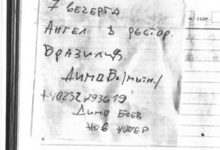 7 вечерта
Ангел в рестор.
Бразилия
Димо Бо
0232 293619
Димо Боев
нов номер